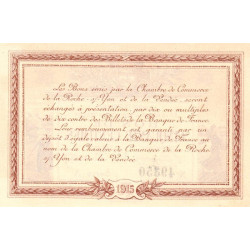 Les Bons émis par la Chambre de Commerce
de la Roche s/Yon et de la Vendée, seront
échangés à présentation, par dix ou multiples
de dix contre des Billets de la Banque de France.
Leur remboursement est garanti par un
dépôt d'égale valeur à la Banque de France au
nom de la Chambre de Commerce de la Roche
s/Yon et de la Vendée
1915